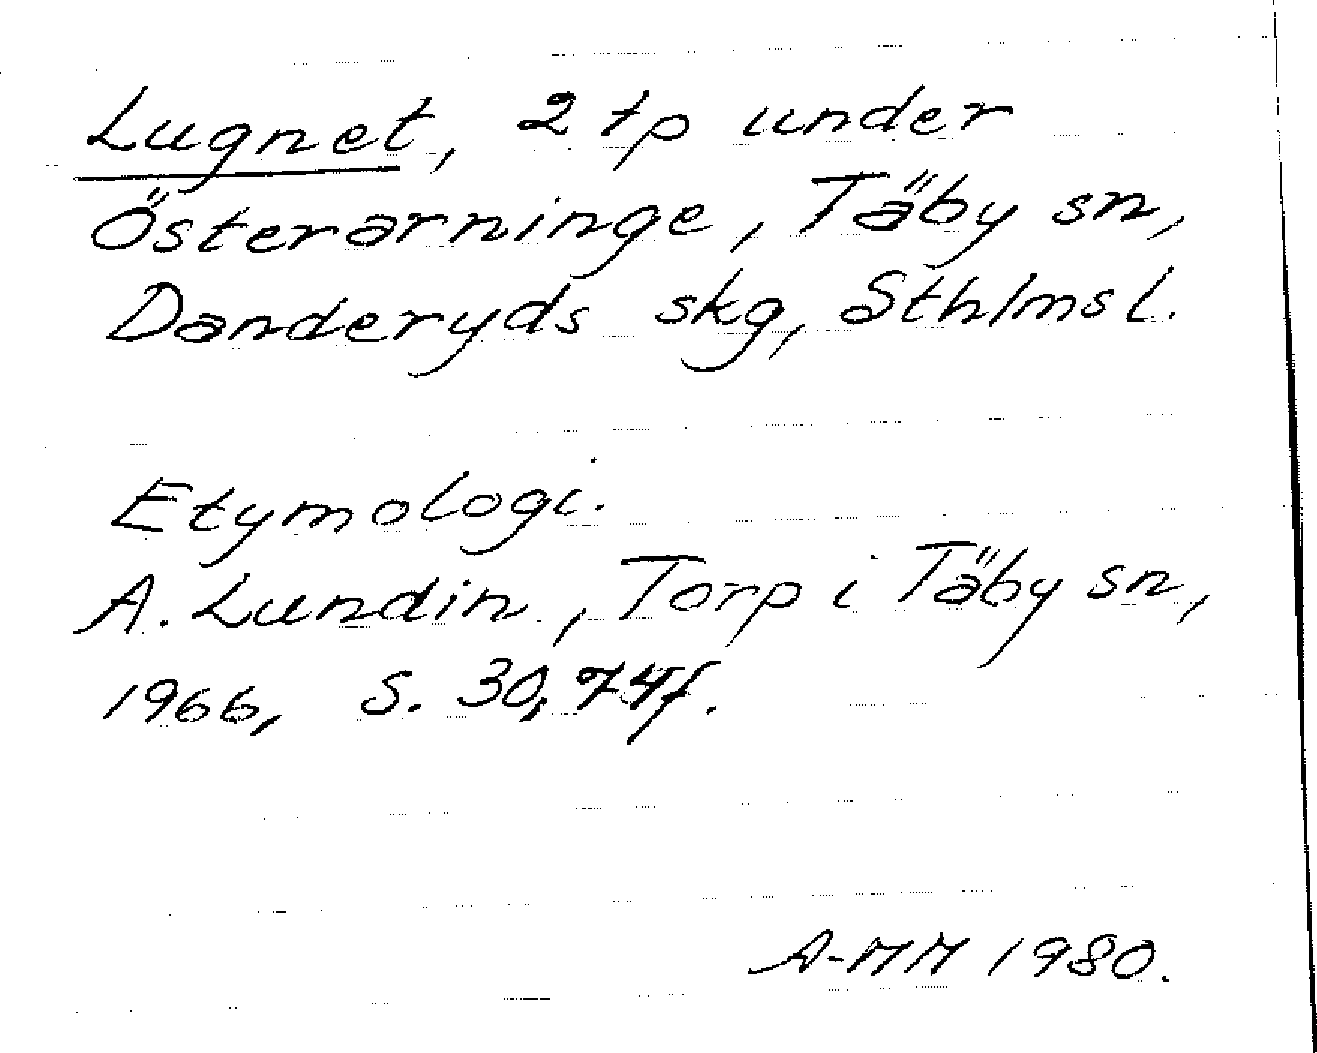 Lugnet, 2 tp under
Österarninge, Täby sn,
Danderyds skg, Sthlms l.
Etymologi.
A. Lundin, Torp i Täby sn,
1966, S. 30, 74f.
A-MM 1980.